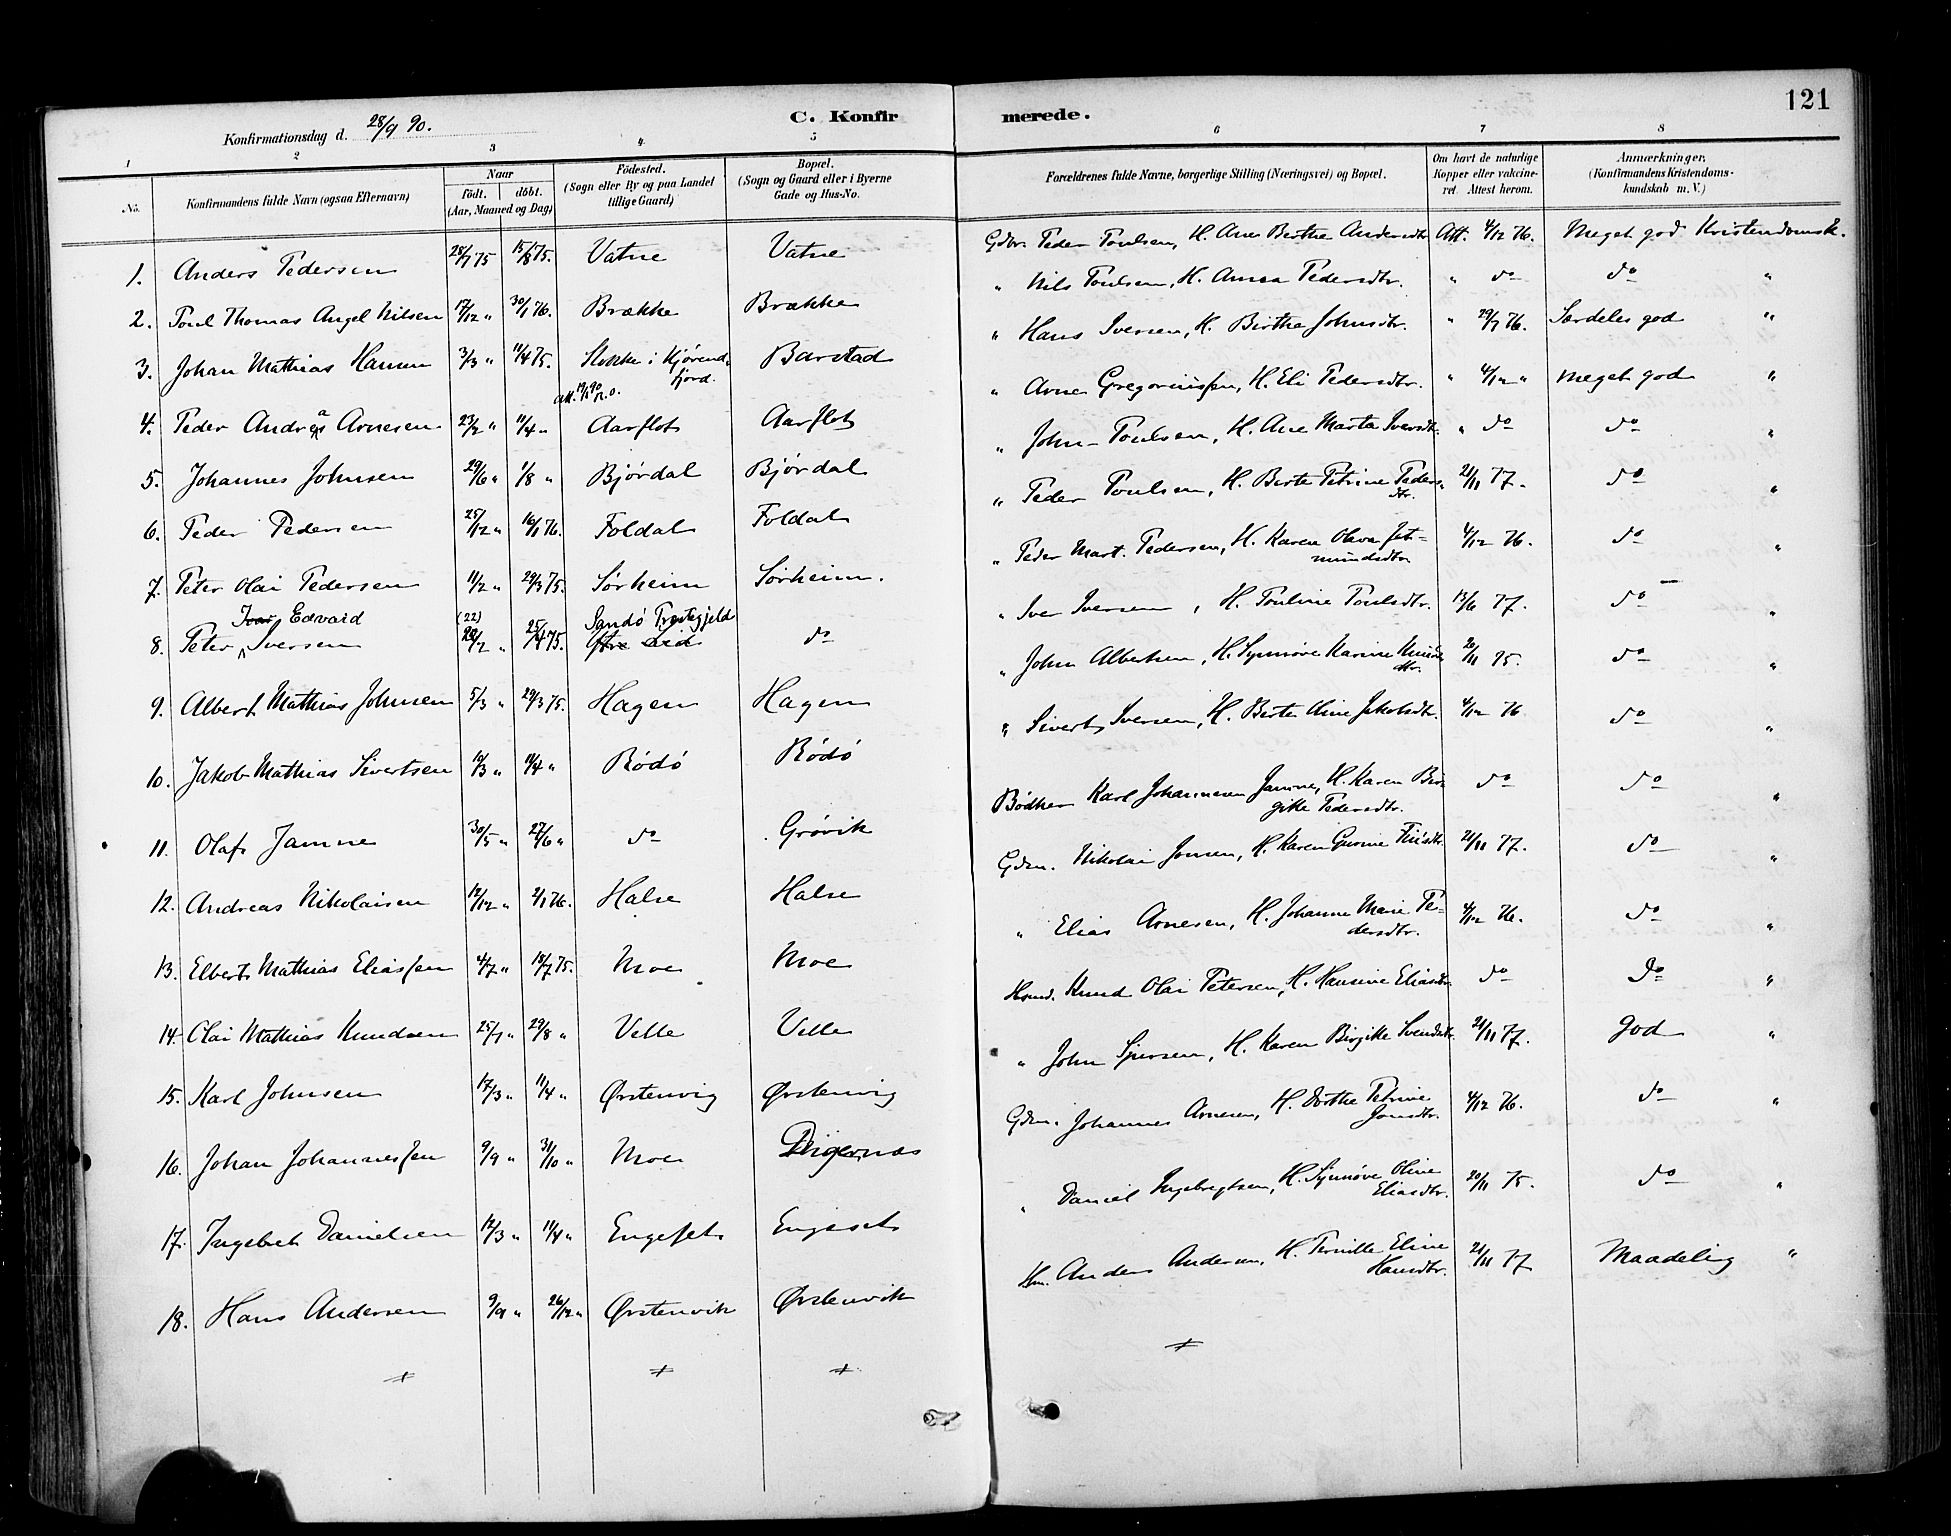 121
C. Konfirmerede.
Konfirmationsdag d. 28/9 90.
1 2 3 4 5 6 7 8
No.
Konfirmandens fulde Navn (ogsaa Efternavn)
Naar
født. døbt.
(Aar, Maaned og Dag)
Fødested.
(Sogn eller By og paa Landet
tillige Gaard)
Bopæl.
(Sogn og Gaard eller i Byerne
Gade og Hus-No.
Forældrenes fulde Navne, borgerlige Stilling (Næringsvei) og Bopæl.
Om havt de naturlige
Kopper eller vakcineret. Attest herom.
Anmærkninger,
(Konfirmandens Kristendomskundskab m. V.)
1. Anders Pedersen 28/7 75 15/8 75. Vatne Vatne Gdbr. Peder Poulsen, H. Ane Berthe Andersdtr. Att. 4/12 76. Meget god Kristendomsk.
2. Poul Thomas Angel Nilsen 17/12 „ 30/1 76. Brække Brække „ Nils Poulsen, H. Anna Pedersdtr. „ do do „
3. Johan Mathias Hansen 3/3 „ 11/4 75. Slokke i Hjørendfjord. Barstad „ Hans Iversen, H. Birthe Johnsdtr. „ 29/7 76. Særdeles god „
4. Peder Andreas Arnesen 23/2 „ 11/4 „ Aarflot Aarflot „ Arne Gregoriussen, H. Eli Pedersdtr. „ 4/12 „ meget god „
5. Johannes Johnsen 29/6 „ 1/8 „ Bjørdal Bjørdal „ John Poulsen, H. Ane Marta Iversdtr. „ do do „
6. Peder Pedersen 25/12 „ 16/1 76. Foldal Foldal „ Peder Poulsen, H. Berte Petrine Pedersdtr. 21/11 77. do „
7. Peter Olai Pedersen 11/2 „ 29/3 75. Sørheim Sørheim. „ Peder Mart. Pedersen, H. Karen Oliva Jetmundsdtr. 4/12 76. do „
8. Peter Edvard Iversen (22) 28/2 „ 25/4 75. Sandø Prestegjeld do „ Iver Iversen, H. Pouline Poulsdtr. 13/6 77. do „
9. Albert Mathias Johnsen 5/3 „ 29/3 75. Hagen Hagen „ John Albertsen, H. Synnøve Karine Knudsdtr. 20/11 75. do „
10. Jakob Mathias Sivertsen 10/3 „ 11/4 „ Rødø Rødø „ Sivert Iversen, H. Berte Oline Jakobsdtr. 4/12 76 do „
11. Olaf Jamne 30/5 „ 27/6 „ do Grøvik Bødker Karl Johannesen Jamne, H. Karen Birgitte Pedersdtr. do do „
12. Andreas Nikolaisen 12/12 „ 2/1 76. Halse Halse Gdm. Nikolai Jonsen, H. Karen Gurine 21/11 77. do „
13. Elbert Mathias Eliassen 4/7 „ 18/7 75. Moe Moe „ Elias Arnesen, H. Johanne Marie Pedersdtr. 4/12 76. do „
14. Olai Mathias Knudsen 25/7 „ 29/8 „ Velle Velle Hsmd. Knud Olai Petersen, H. Hansine Eliasdtr. do do „
15. Karl Johnsen 17/3 „ 11/4 „ Ørstenvig Ørstenvig „ John Sjursen, H. Karen Birgitte Svendsdtr. 21/11 77. god „
16. Johan Johannessen 9/9 „ 31/10 „ Moe Digernæs Gdm. Johannes Arnesen, H. Dorthe Petrine Jonsdtr. 4/12 76. do „
17. Ingebret Danielsen 12/3 „ 11/4 „ Engeset Engeset „ Daniel Ingebregtsen, H. Synnøve Oline Eliasdtr. 20/11 75. do „
18. Hans Andersen 9/9 „ 26/12 „ Ørstenvik Ørstenvik Hm. Anders Andersen, H. Pernille Eline Hansdtr. 21/11 77 Maadelig „